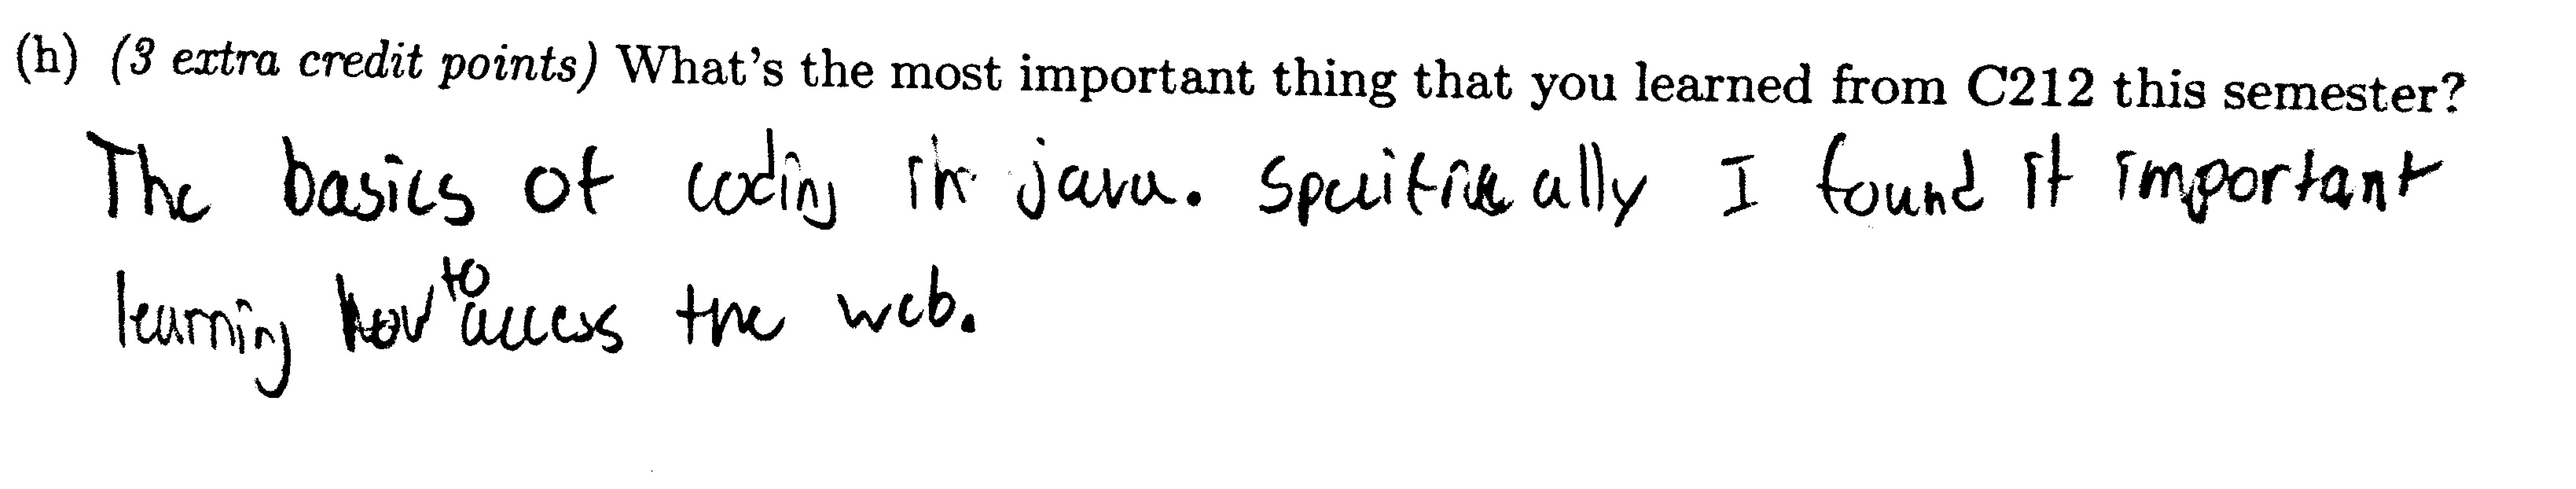 (h) (3 extra credit points) What's the most important thing that you learned from C212 this semester?
The basics of coding in java. Specifically I found it important
learning how to access the web.